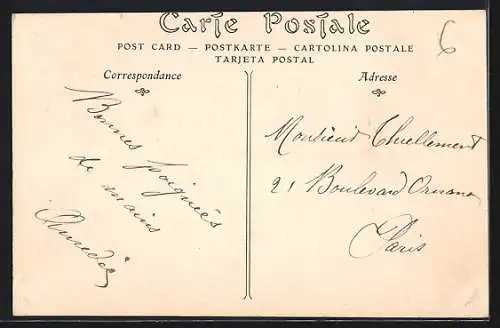 Carte Postale
POST CARD — POSTKARTE — CARTOLINA POSTALE
TARJETA POSTAL
Correspondance
Adresse
6
Bonnes poignées
de mains
Amédée
Monsieur Thuellement
21 Boulevard Ornano
Paris